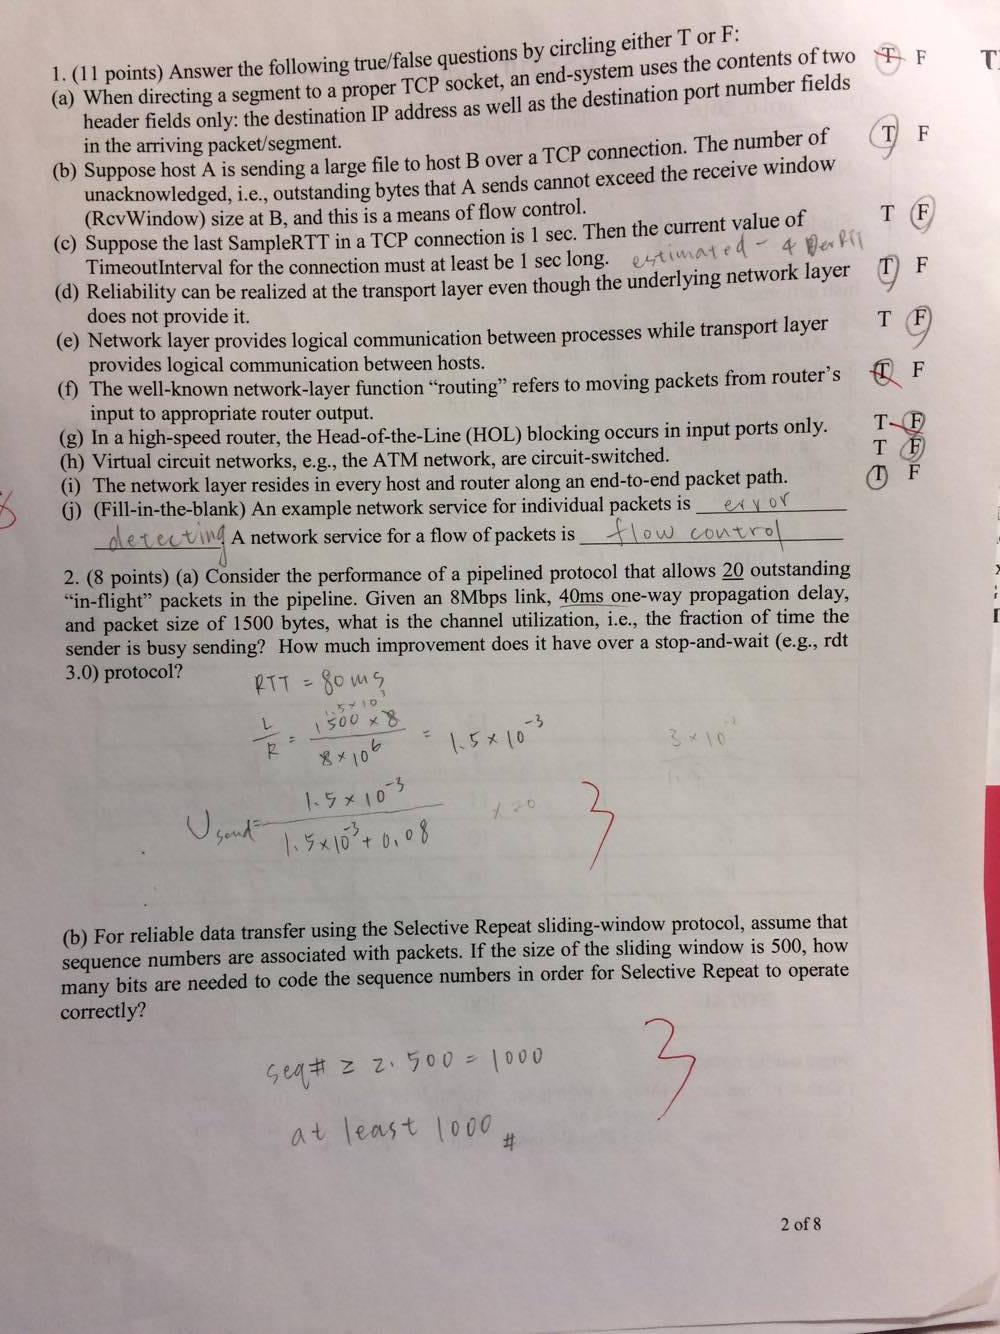 1. (11 points) Answer the following true/false questions by circling either T or F:
(a) When directing a segment to a proper TCP socket, an end-system uses the contents of two T F
header fields only: the destination IP address as well as the destination port number fields
in the arriving packet/segment.
(b) Suppose host A is sending a large file to host B over a TCP connection. The number of T F
unacknowledged, i.e., outstanding bytes that A sends cannot exceed the receive window
(RcvWindow) size at B, and this is a means of flow control.
(c) Suppose the last SampleRTT in a TCP connection is 1 sec. Then the current value of T F
TimeoutInterval for the connection must at least be 1 sec long. estimated - 4 DevRTT
(d) Reliability can be realized at the transport layer even though the underlying network layer T F
does not provide it.
(e) Network layer provides logical communication between processes while transport layer T F
provides logical communication between hosts.
(f) The well-known network-layer function “routing” refers to moving packets from router’s T F
input to appropriate router output.
(g) In a high-speed router, the Head-of-the-Line (HOL) blocking occurs in input ports only. T F
(h) Virtual circuit networks, e.g., the ATM network, are circuit-switched. T F
(i) The network layer resides in every host and router along an end-to-end packet path. T F
(j) (Fill-in-the-blank) An example network service for individual packets is error
detecting A network service for a flow of packets is flow control
2. (8 points) (a) Consider the performance of a pipelined protocol that allows 20 outstanding
“in-flight” packets in the pipeline. Given an 8Mbps link, 40ms one-way propagation delay,
and packet size of 1500 bytes, what is the channel utilization, i.e., the fraction of time the
sender is busy sending? How much improvement does it have over a stop-and-wait (e.g., rdt
3.0) protocol?
RTT = 80 ms
1.5 × 10³
L/R = 1500 × 8 / 8 × 10⁶ = 1.5 × 10⁻³
3 × 10
U send = 1.5 × 10⁻³ / 1.5 × 10⁻³ + 0.08 × 20
3
(b) For reliable data transfer using the Selective Repeat sliding-window protocol, assume that
sequence numbers are associated with packets. If the size of the sliding window is 500, how
many bits are needed to code the sequence numbers in order for Selective Repeat to operate
correctly?
seq# ≥ 2 · 500 = 1000
3
at least 1000 #
2 of 8